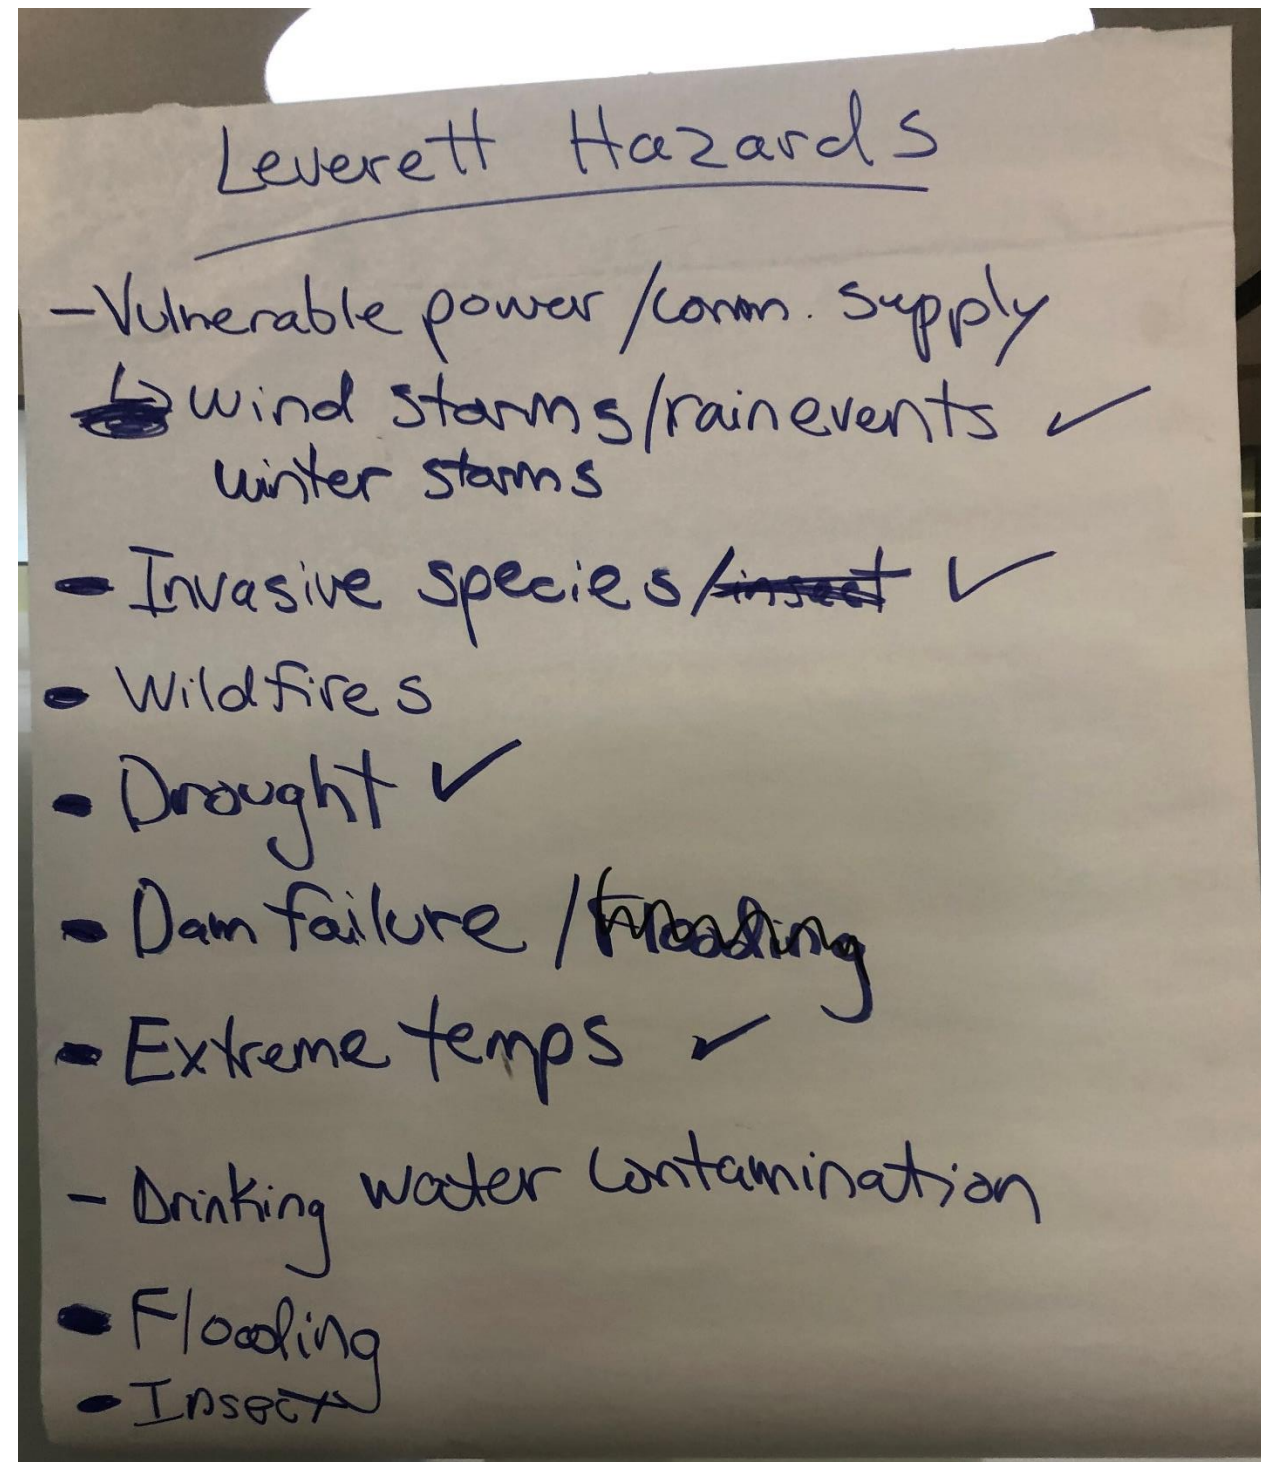 Leverett Hazards
- Vulnerable power/comm. supply
↳ wind storms/rain events ✓
winter storms
- Invasive species/insect ✓
- Wildfires
- Drought ✓
- Dam failure /flooding
- Extreme temps ✓
- Drinking water contamination
- Flooding
- Insect